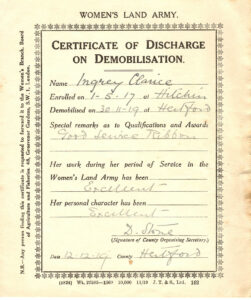 WOMEN'S LAND ARMY.
CERTIFICATE OF DISCHARGE
ON DEMOBILISATION.
Name Ingrey Clarice
Enrolled on 1-5-17 at Hitchin
Demobilised on 30-11-19 at Hertford
Special remarks as to Qualifications and Awards
Good Service Ribbon
Her work during her period of Service in the
Women's Land Army has been
Excellent
Her personal character has been
Excellent
D. Stone
(Signature of County Organising Secretary.)
Date 12-12-19 County Hertford
10,000 11/19 J. T. & S., Ltd. 182
N.B.—Any person finding this certificate is requested to forward it to the Women's Branch, Board
of Agriculture and Fisheries, Grosvenor Gardens, S.W.1, London.